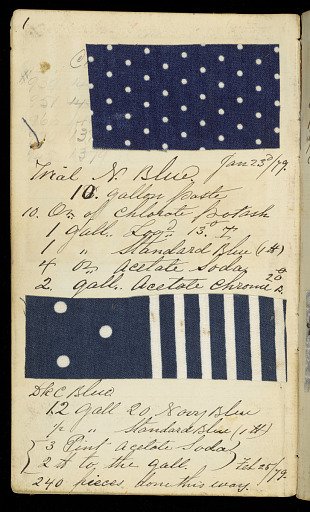 1
Jan 23d/79.
Trial N. Blue
10. gallon paste
10. Oz of chlorate Potash
1 gall. Logd 13° T
1 " Standard Blue (1#)
4 oz Acetate Soda
2. gall. Acetate Chrome 20
D & C Blue
12 Gall 20 Navy Blue
1/2 " Standard Blue (1#)
3 Pint acetate Soda
2 # to the gall.
Feb 25/79.
240 pieces done this way.